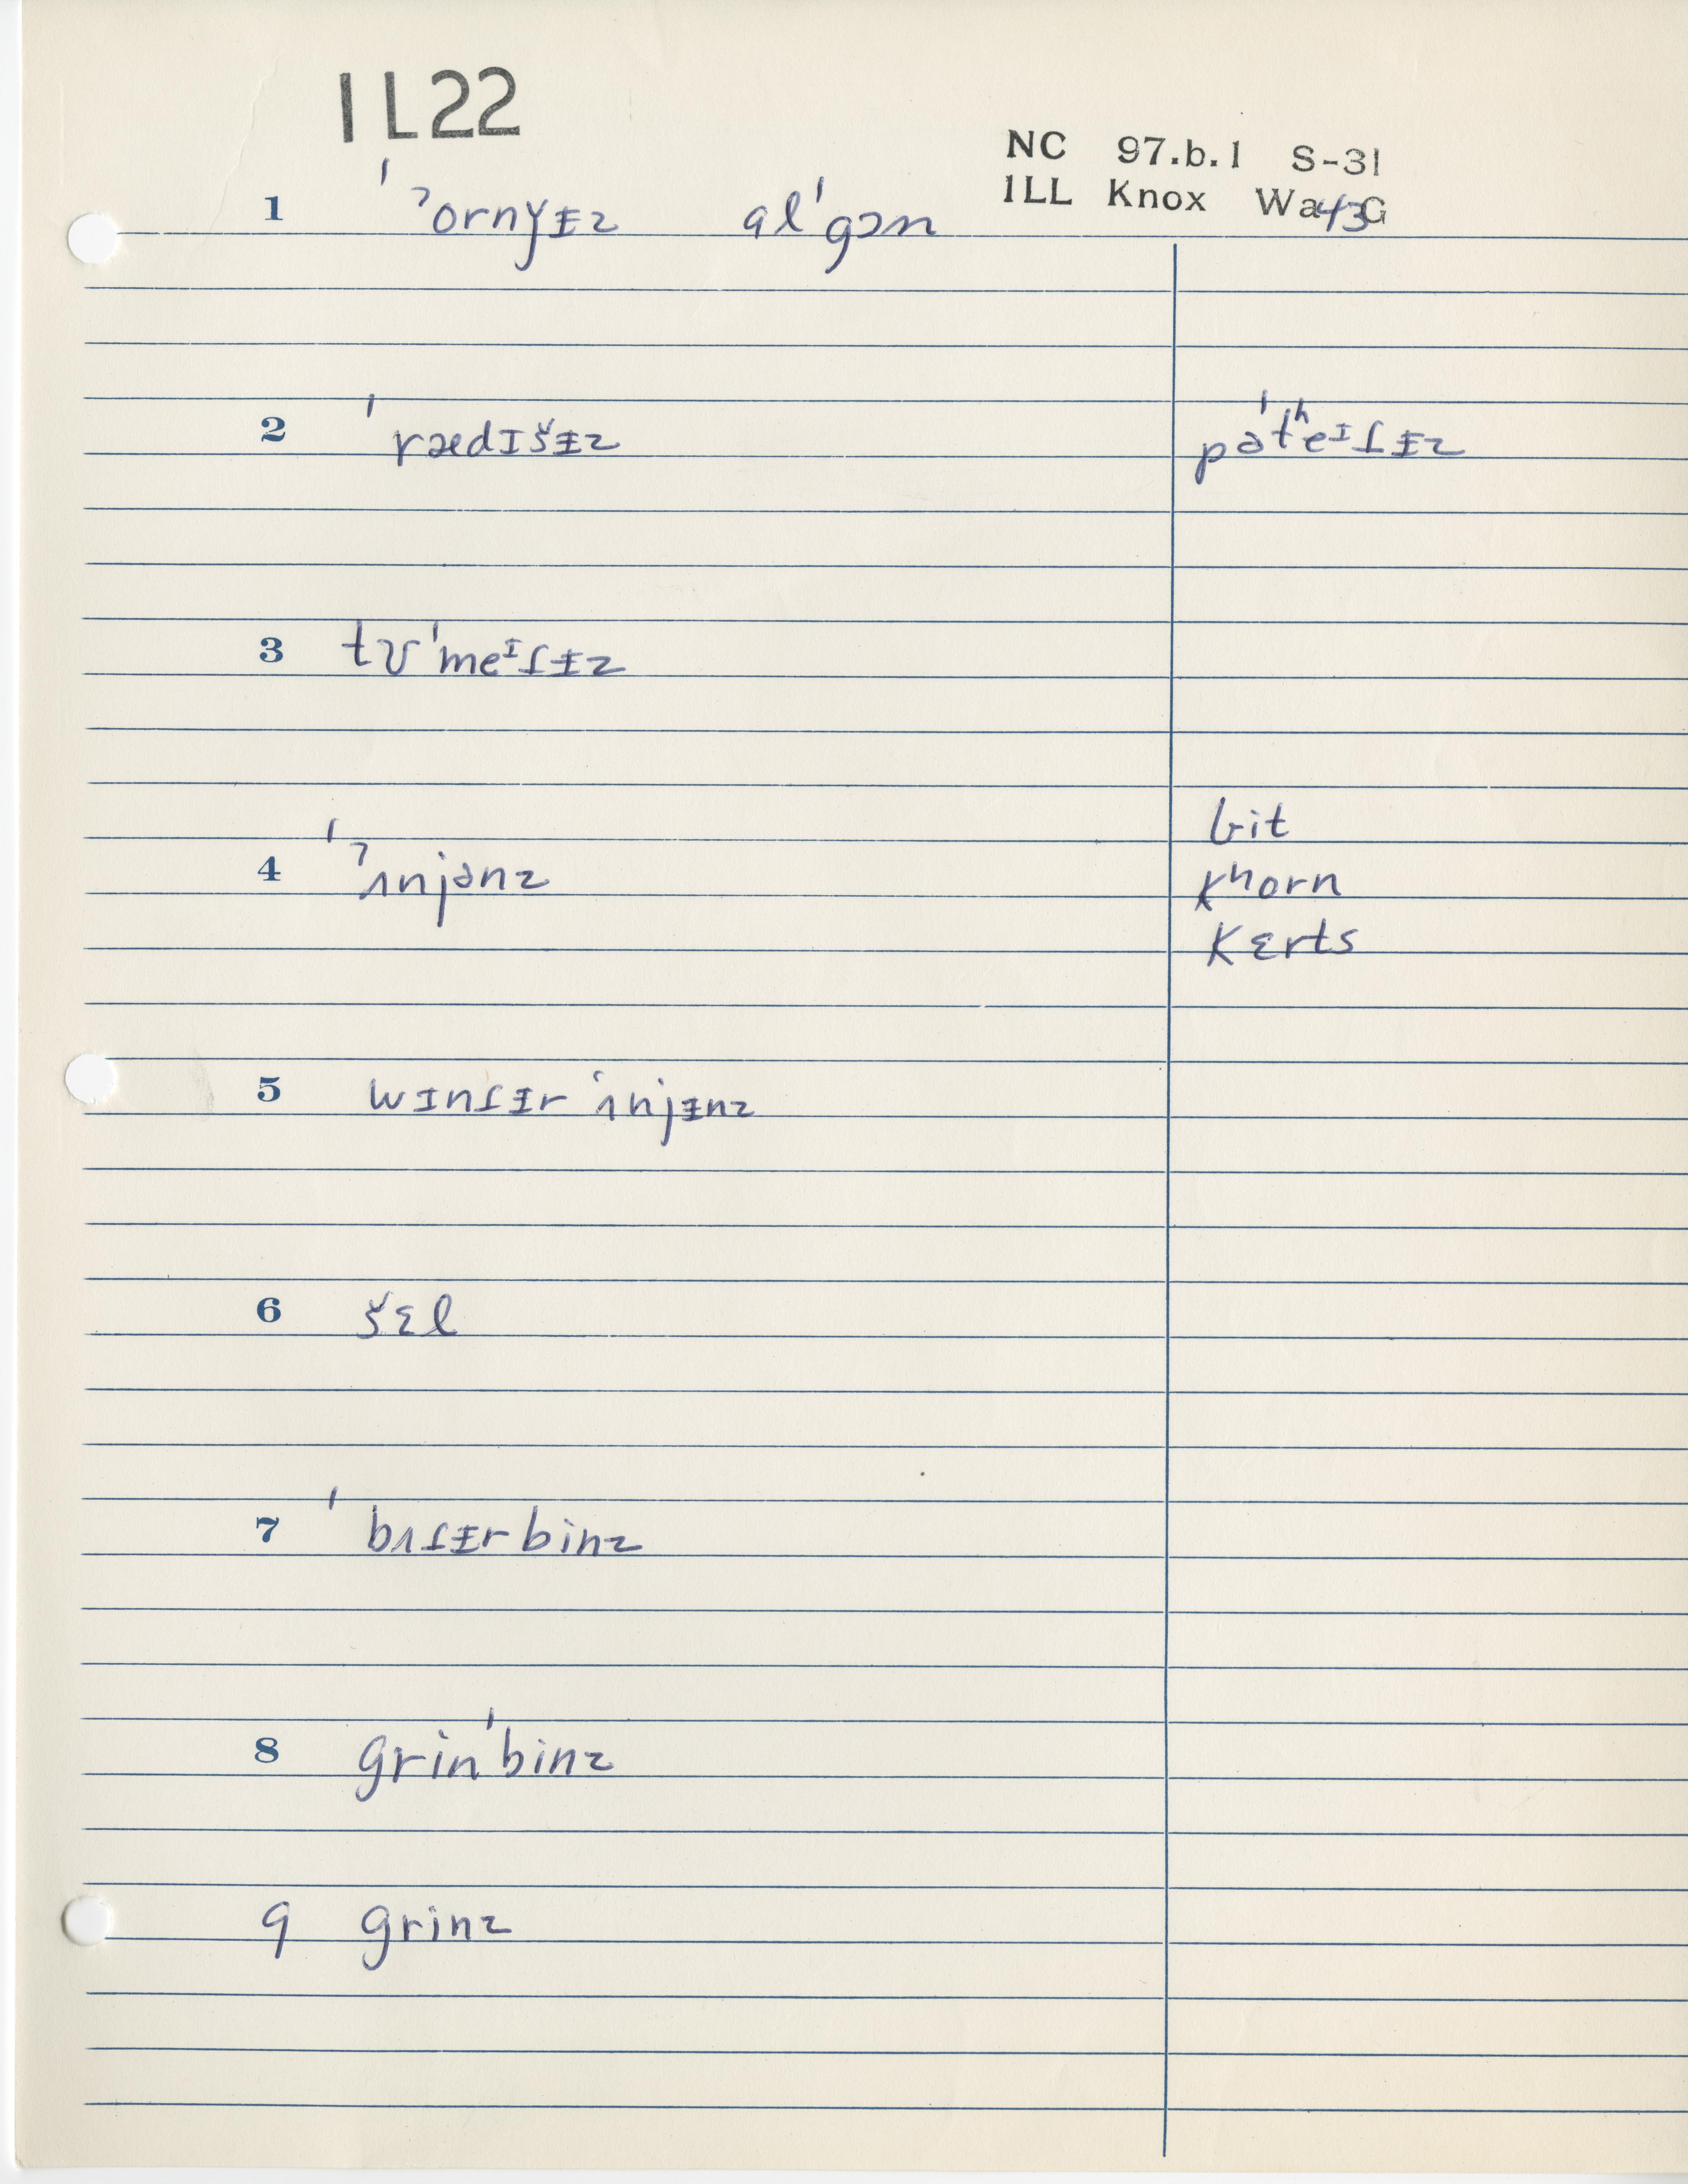 IL22
NC 97.b.1 S-31
ILL Knox Wa43G
1 ˈˀornǰᵻz ɑlˈgɔn
2 ˈrædɪšᵻz pəˈtʰeᶦɾᵻz
3 tʊˈmeᶦɾᵻz
4 ˈˀʌnjənz
bit
kʰorn
kɛrts
5 wɪnɾᵻr ˈʌnjᵻnz
6 šɛl
7 ˈbʌɾᵻrbinz
8 grinˈbinz
9 grinz